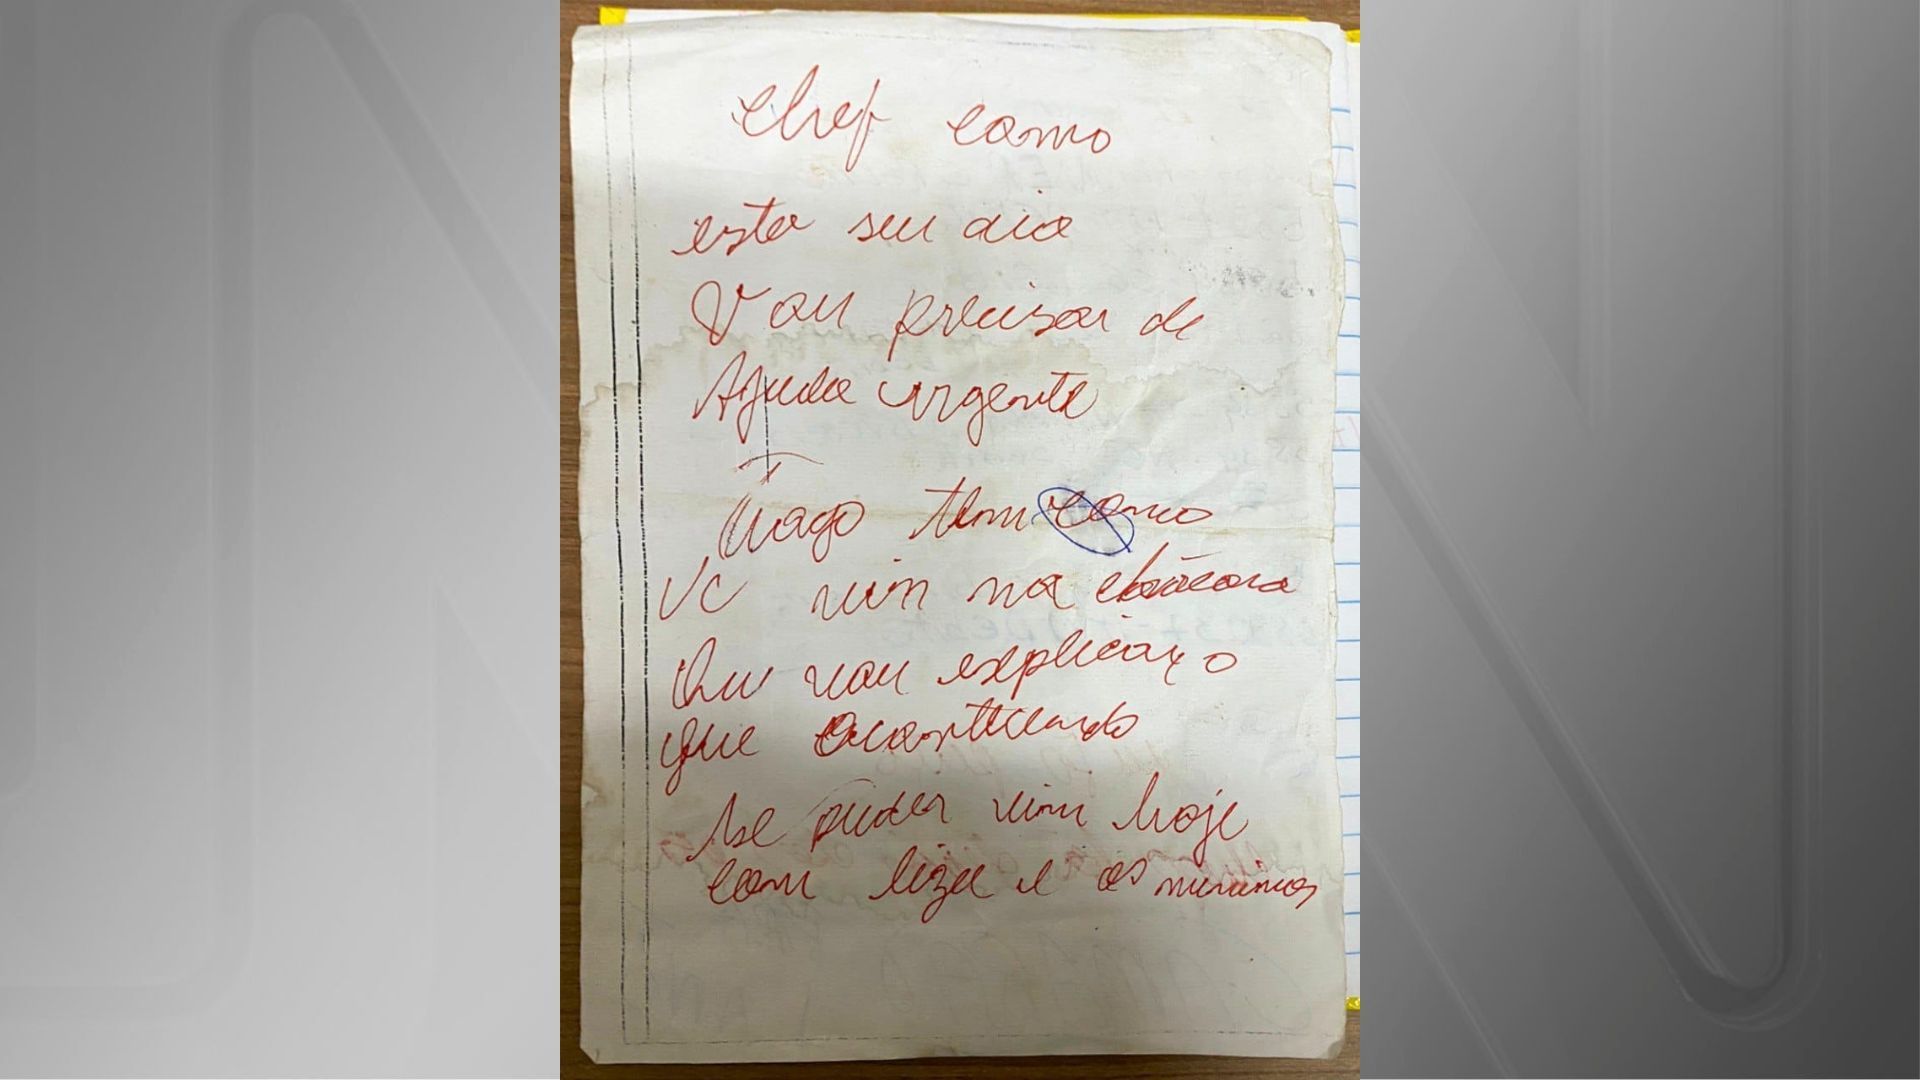 chef como
esta seu dia
Vou precisar de
Ajuda urgente
Tiago tem como
VC vim na
vou explicar o
que acontecendo
se puder vim hoje
com liza e os meninos